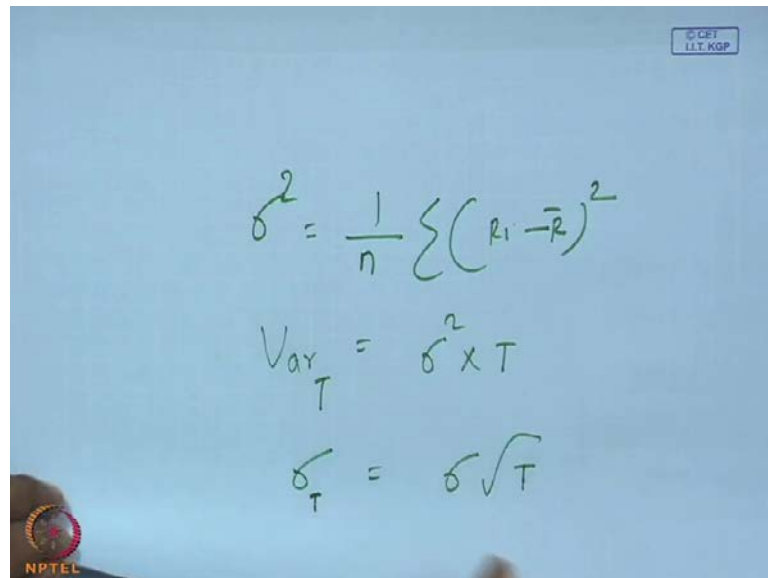 © CET
I.I.T. KGP
σ² = 1/n Σ(R1 - R̄)²
Var_T = σ² × T
σ_T = σ√T
NPTEL